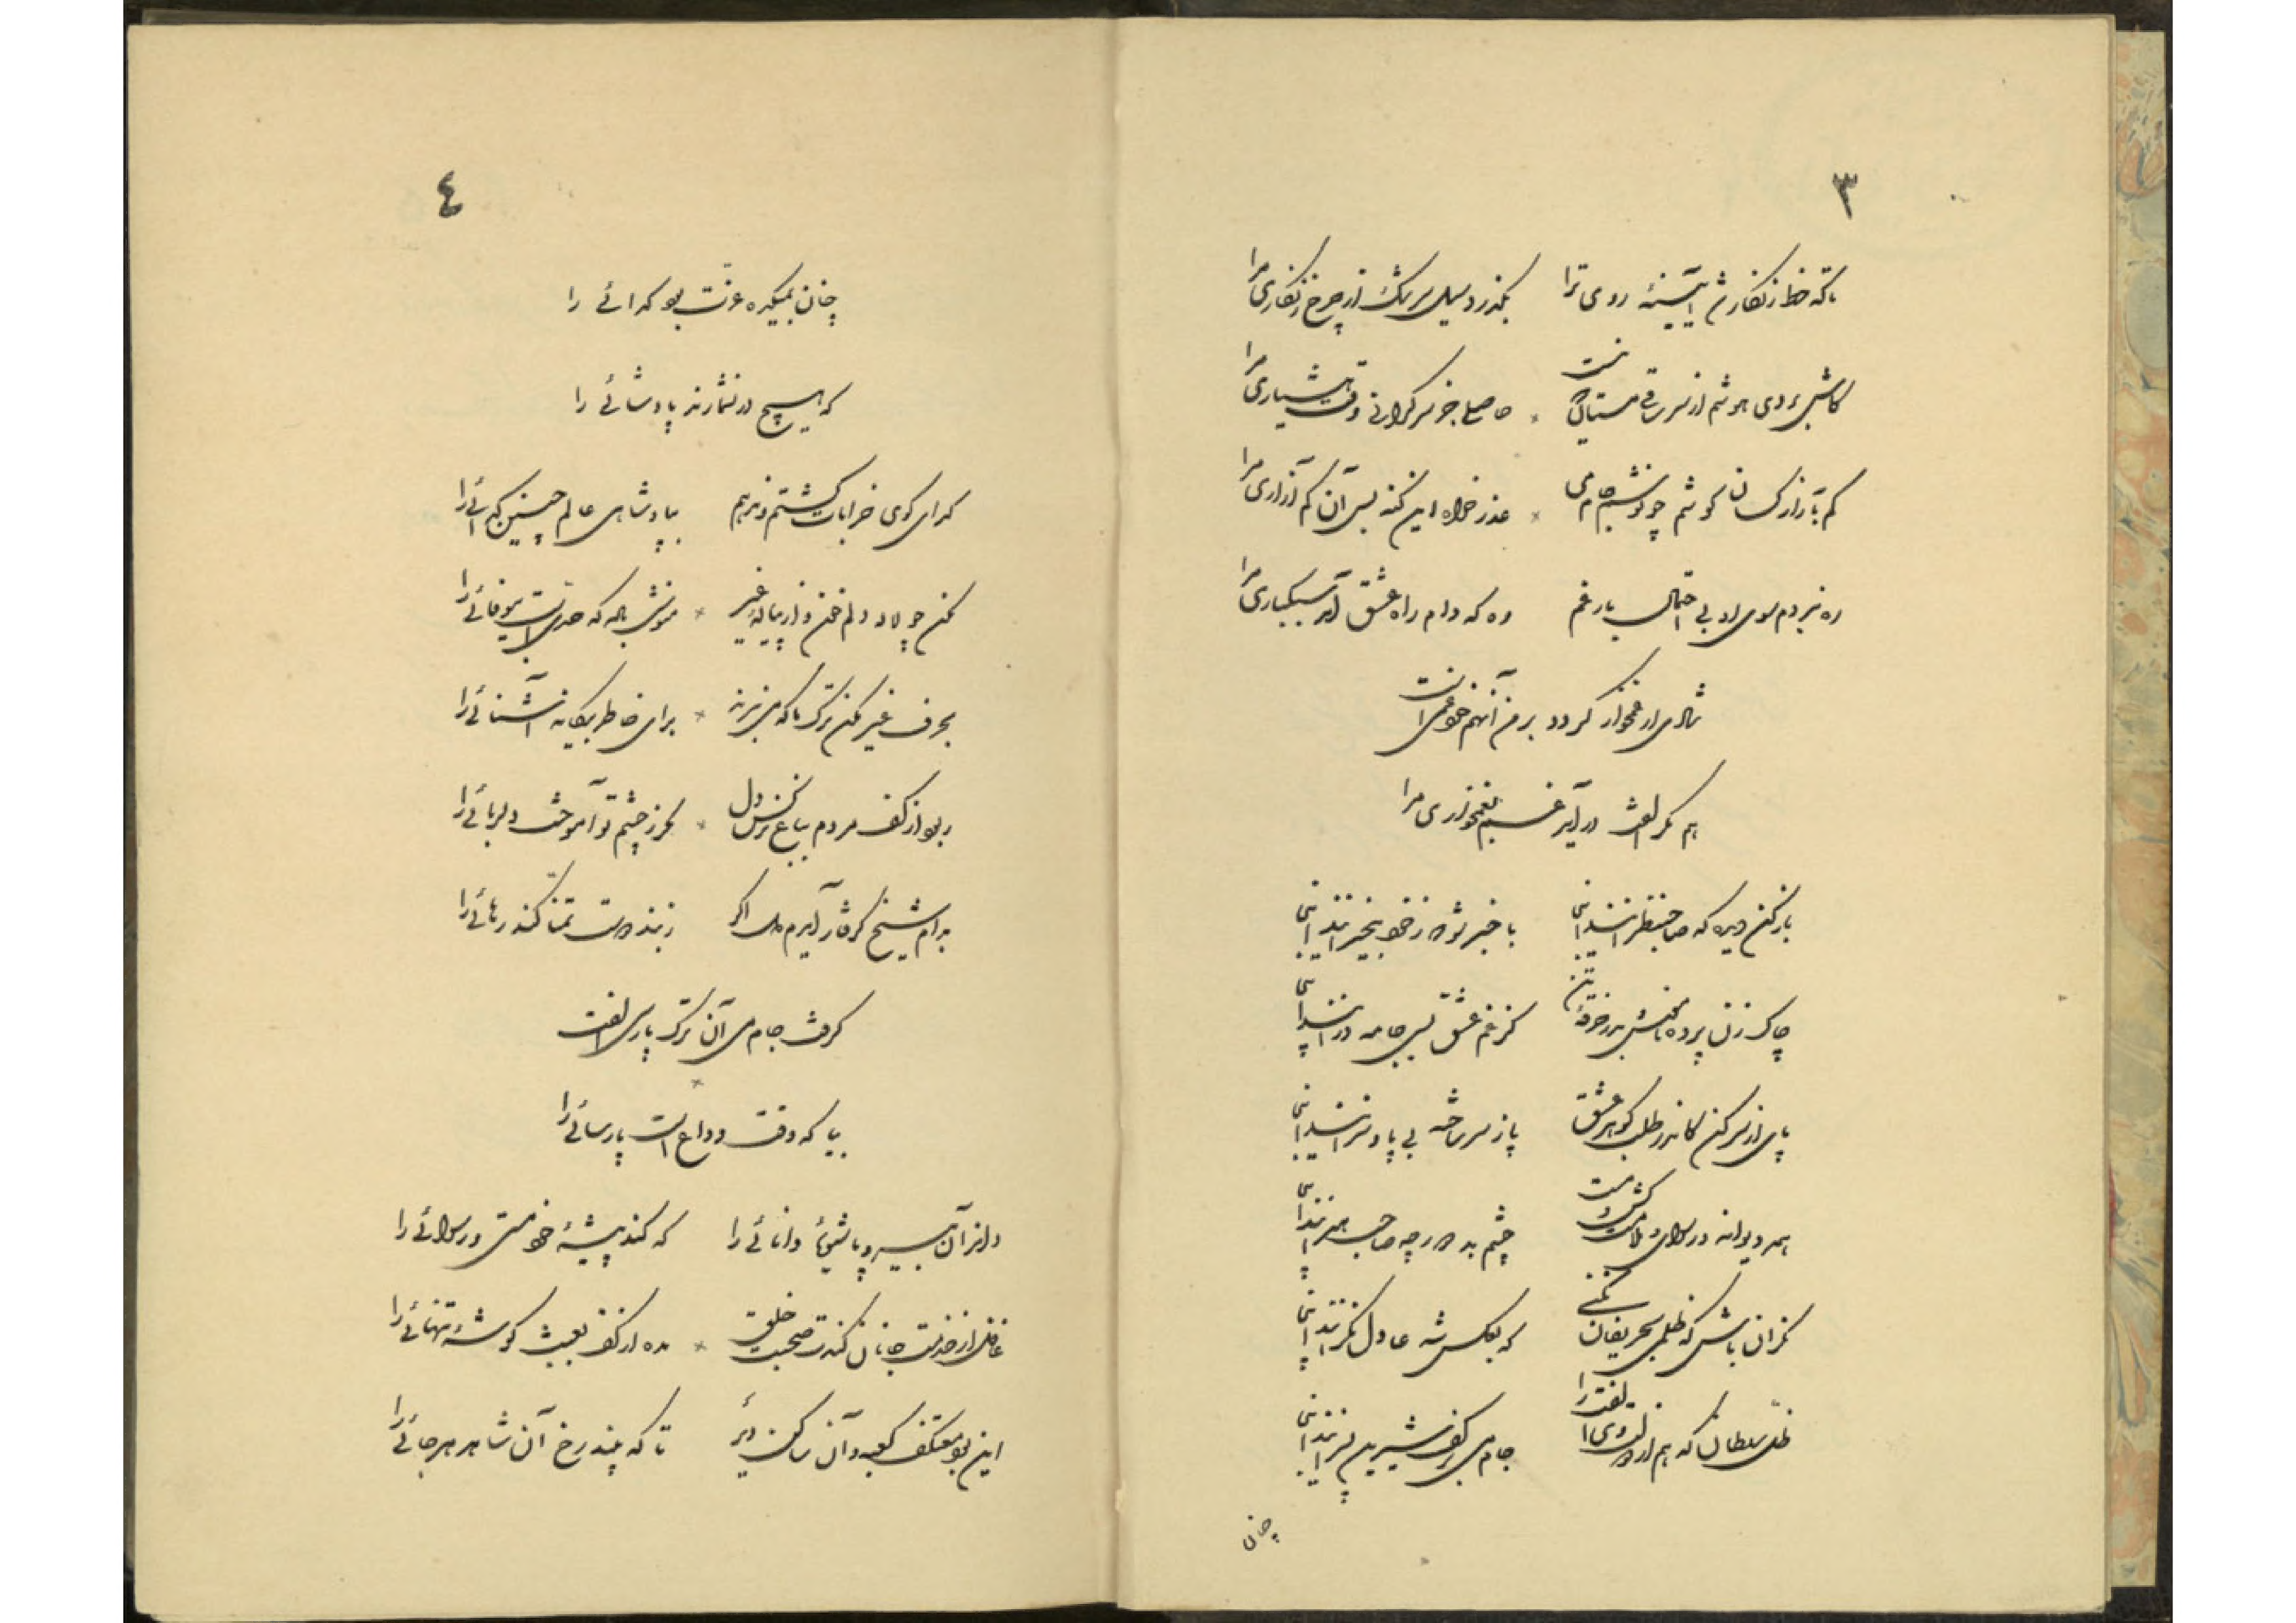 ٣
تا که خط زنگار شد آیینهٔ روی ترا
بگذرد سیل سرشک از چرخ زنگاری مرا
کاش بردی هوشم از سر ساقی مستان که نیست
حاصلی جز سرگرانی وقت هشیاری مرا
کم بآزار کسان کوشم چو نوشم جام می
عذر خواه این گنه بس آن کم آزاری مرا
ره نبردم سوی او بی احتمال بار غم
وه که دام راه عشق آمد سبکباری مرا
شادی ار غمخوار گردد بر من آنهم خود غمی است
هم مگر الفت در آید غم بغمخواری مرا
باز کن دیده که صاحبنظرانند اینی
با خبر شو که ز خود بیخبرانند اینی
چاک زن پرده مخنش بر خرقهٔ تن
کز غم عشق بسی جامه درانند اینی
پای از سر کن کاندر طلب گوهر عشق
پا ز سر ساخته بی پا و سرانند اینی
همه دیوانه و رسوای و ملامت کش و مست
چشم بد دور چه صاحب هنرانند اینی
نگران باش که ظلمی بحریفان نکنی
که بعکس شه عادل نگرانند اینی
ظل سلطان که هم از دولت وی الفت را
جام می بر کف شیرین پسرانند اینی
چنان
٤
چنان بمیکده عزت بود گدائی را
که هیچ در نشمارند پادشائی را
گدای کوی خرابات گشتم و ندهم
بپادشاهی عالم چنین گدائی را
مکن چو لاله دلم خون و از پیاله غیر
منوش باده که حدی است بیوفائی را
بحرف غیر مکن ترک ما که می نبرند
برای خاطر بیگانه آشنائی را
ربود از کف مردم بباغ نرگس دل
مگر ز چشم تو آموخت دلربائی را
بدام شیخ گرفتار آیدم دل اگر
ز بند دوست تمنا کند رهائی را
گرفت جام می آن ترک پارسی الفت
بیا که وقت وداع است پارسائی را
دلبر آن به سپرد باشیوهٔ دانائی را
که کند پیشهٔ خود مستی و رسوائی را
غافل از خدمت جانان کندت صحبت خلق
مده از کف بعبث گوشهٔ تنهائی را
این بود معتکف کعبه و آن ساکن دیر
تا که بیند رخ آن شاهد هر جائی را